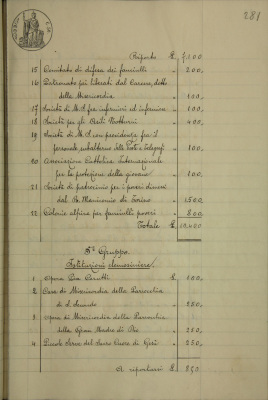 281
Riporto £ 7,100
15 Comitato di difesa dei fanciulli " 200,
16 Patronato pei liberati dal Carcere, detto
della Misericordia " 100,
17 Società di M. S. fra infermieri ed infermiere " 100,
18 Società per gli Asili Notturni " 400,
19 Società di M. S. con previdenza fra il
personale subalterno Poste e Telegrafi " 100,
20 Associazione Cattolica Internazionale
per la protezione della giovane " 100,
21 Società di patrocinio per i poveri dimessi
dal R. Manicomio di Torino " 1500,
22 Colonie alpine per fanciulli poveri " 800,
Totale £ 10,400
5° Gruppo.
Istituzioni elemosiniere.
1 Opera Pia Barotti £ 100,
2 Casa di Misericordia della Parrocchia
di S. Secondo " 250,
3 Opera di Misericordia della Parrocchia
della Gran Madre di Dio " 250,
4 Piccole Serve del Sacro Cuore di Gesù " 250,
A riportarsi £ 850